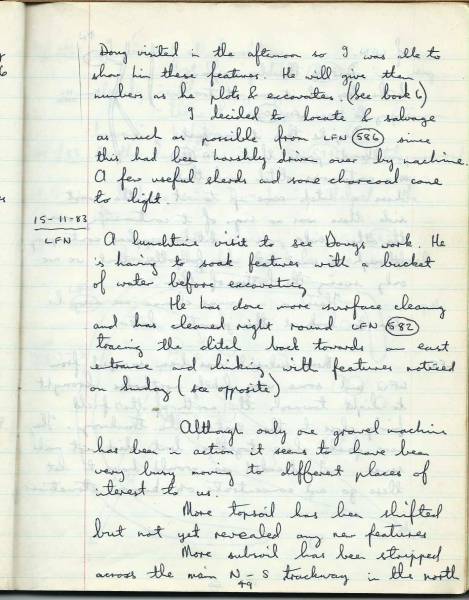 Doug visited in the afternoon so I was able to
show him these features. He will give them
numbers as he plots & excavates. (See book 6)
I decided to locate & salvage
as much as possible from LFN 586 since
this had been harshly driven over by machine.
A few useful sherds and some charcoal came
to light.
15-11-83
LFN
A lunchtime visit to see Dougs work. He
is having to soak features with a bucket
of water before excavating
He has done more surface cleaning
and has cleaned right round LFN 582
tracing the ditch back towards an east
entrance and linking with features noticed
on Sunday (see opposite)
Although only one gravel machine
has been in action it seems to have been
very busy moving to different places of
interest to us.
More topsoil has been shifted
but not yet revealed any new features
More subsoil has been stripped
across the main N-S trackway in the north
49